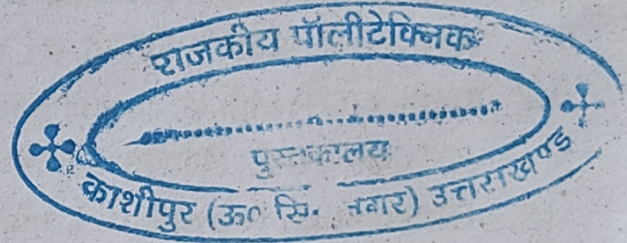 राजकीय पॉलीटेक्निक
पुस्तकालय
काशीपुर (ऊ० सि. नगर) उत्तराखण्ड